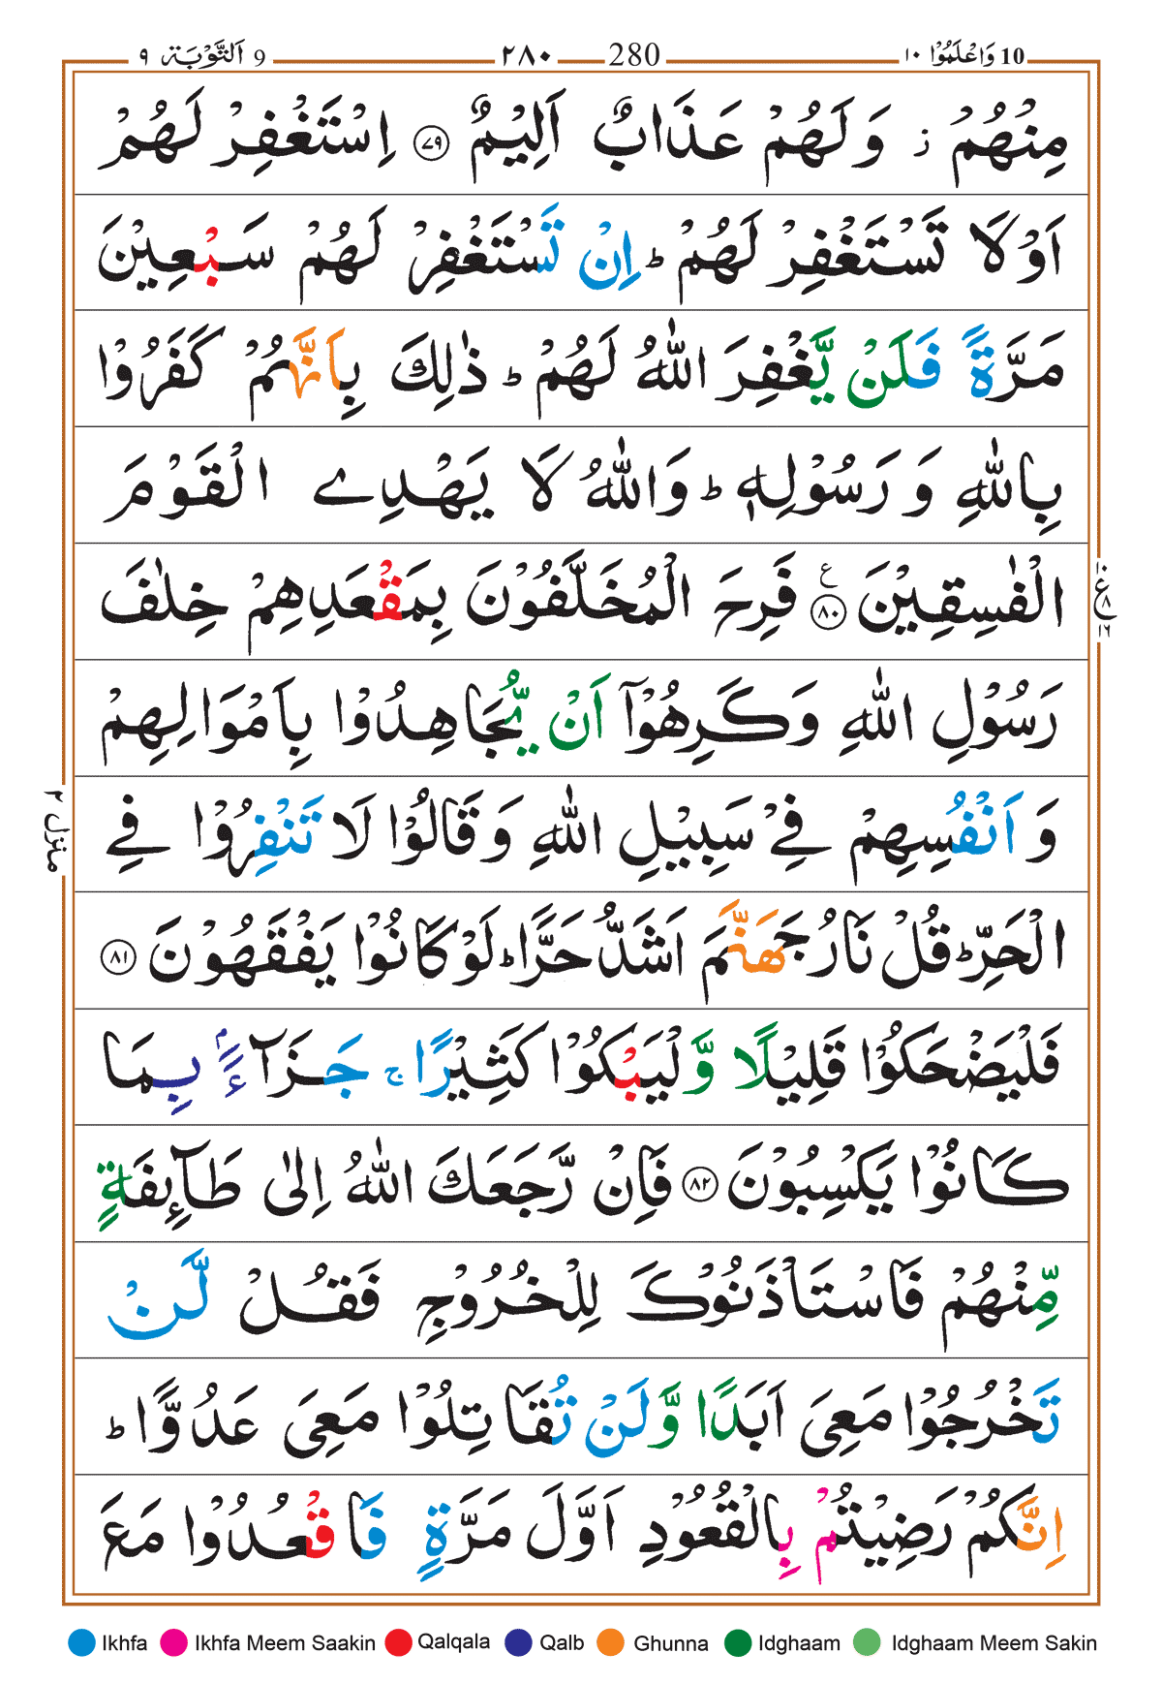 10 وَاعْلَمُوْا ١٠ 280 ٢٨٠ 9 اَلتَّوْبَة ٩
مِنْهُمْ ؗ وَلَهُمْ عَذَابٌ اَلِيْمٌ ﴿۷۹﴾ اِسْتَغْفِرْ لَهُمْ
اَوْ لَا تَسْتَغْفِرْ لَهُمْ ؕ اِنْ تَسْتَغْفِرْ لَهُمْ سَبْعِيْنَ
مَرَّةً فَلَنْ يَّغْفِرَ اللّٰهُ لَهُمْ ؕ ذٰلِكَ بِاَنَّهُمْ كَفَرُوْا
بِاللّٰهِ وَ رَسُوْلِهٖ ؕ وَاللّٰهُ لَا يَهْدِے الْقَوْمَ
الْفٰسِقِيْنَ ﴿۸۰﴾ ع فَرِحَ الْمُخَلَّفُوْنَ بِمَقْعَدِهِمْ خِلٰفَ
رَسُوْلِ اللّٰهِ وَكَرِهُوْٓا اَنْ يُّجَاهِدُوْا بِاَمْوَالِهِمْ
وَ اَنْفُسِهِمْ فِيْ سَبِيْلِ اللّٰهِ وَ قَالُوْا لَا تَنْفِرُوْا فِي
الْحَرِّ ؕ قُلْ نَارُ جَهَنَّمَ اَشَدُّ حَرًّا ؕ لَوْ كَانُوْا يَفْقَهُوْنَ ﴿۸۱﴾
فَلْيَضْحَكُوْا قَلِيْلًا وَّ لْيَبْكُوْا كَثِيْرًا ۚ جَزَآءًۢ بِمَا
كَانُوْا يَكْسِبُوْنَ ﴿۸۲﴾ فَاِنْ رَّجَعَكَ اللّٰهُ اِلٰى طَآئِفَةٍ
مِّنْهُمْ فَاسْتَاْذَنُوْكَ لِلْخُرُوْجِ فَقُلْ لَّنْ
تَخْرُجُوْا مَعِيَ اَبَدًا وَّ لَنْ تُقَاتِلُوْا مَعِيَ عَدُوًّا ؕ
اِنَّكُمْ رَضِيْتُمْ بِالْقُعُوْدِ اَوَّلَ مَرَّةٍ فَاقْعُدُوْا مَعَ
ع ١٠ ٨ ١٦
منزل ٢
Ikhfa Ikhfa Meem Saakin Qalqala Qalb Ghunna Idghaam Idghaam Meem Sakin